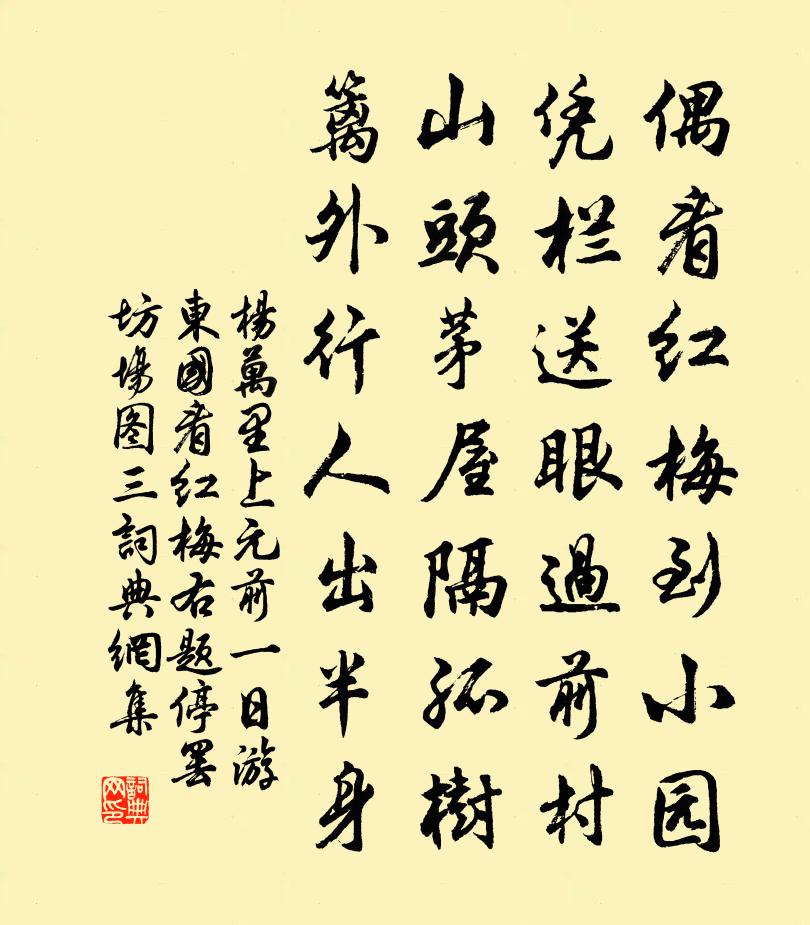 偶看红梅到小园
凭栏送眼過前村
山頭茅屋隔孤樹
篱外行人出半身
楊萬里上元前一日游
東國看红梅右题停罢
坊場图三詞典網集
詞典网印